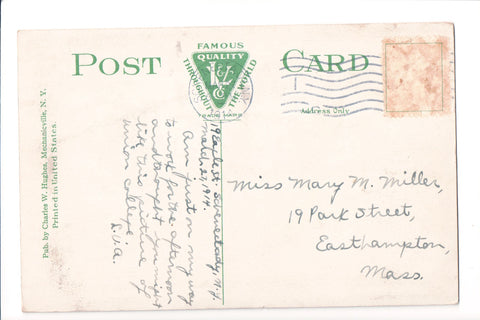 POST CARD
FAMOUS
QUALITY
THROUGHOUT THE WORLD
TRADE MARK
Address Only
Pub. by Charles W. Hughes, Mechanicville, N. Y.
Printed in United States.
Schenectady, N.Y.
March 27, 1914.
Am just on my way
to work for the afternoon
and thought you might
like this picture of
Union College.
Miss Mary M. Miller,
19 Park Street,
Easthampton,
Mass.